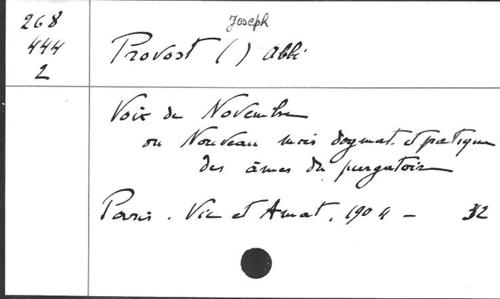 268
444
2
Joseph
Provost ( ) abbé
Voix de Novembre
ou Nouveau mois dogmat. et pratique
des âmes du purgatoire
Paris. Vic et Amat, 1904 — 32